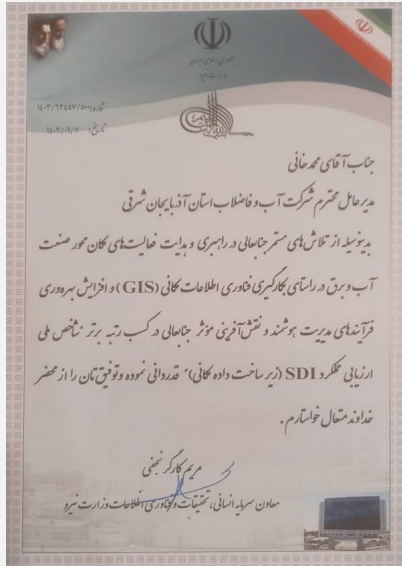 جمهوری اسلامی ایران
وزارت نیرو
شماره: ۱۴۰۳/۶۳۴۵۷/۵۰۰
تاریخ: ۱۴۰۳/۰۹/۷
جناب آقای محمدخانی
مدیرعامل محترم شرکت آب و فاضلاب استان آذربایجان شرقی
بدینوسیله از تلاش‌های مستمر جنابعالی در راهبری و هدایت فعالیت‌های مکان‌محور صنعت
آب و برق در راستای بکارگیری فناوری اطلاعات مکانی (GIS) و افزایش بهره‌وری
فرآیندهای مدیریت هوشمند و نقش‌آفرینی مؤثر جنابعالی در کسب رتبه برتر "شاخص ملی
ارزیابی عملکرد SDI (زیرساخت داده مکانی)" قدردانی نموده و توفیق‌تان را از محضر
خداوند متعال خواستارم.
مریم کارگر نجفی
معاون سرمایه انسانی، تحقیقات و فناوری اطلاعات وزارت نیرو